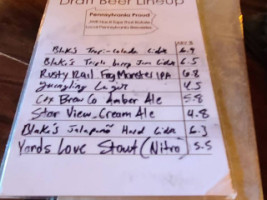 Draft Beer Lineup
Pennsylvania Proud
Blake's Cider 6.9
Blake's Triple Berry Cider 6.5
Rusty Rail Fog Monster IPA 6.8
Lager 4.5
Cox Brew Co Amber Ale 5.8
Star View Cream Ale 4.8
Blake's Jalapeño Hard Cider 6.3
Yards Love Stout (Nitro) 5.5